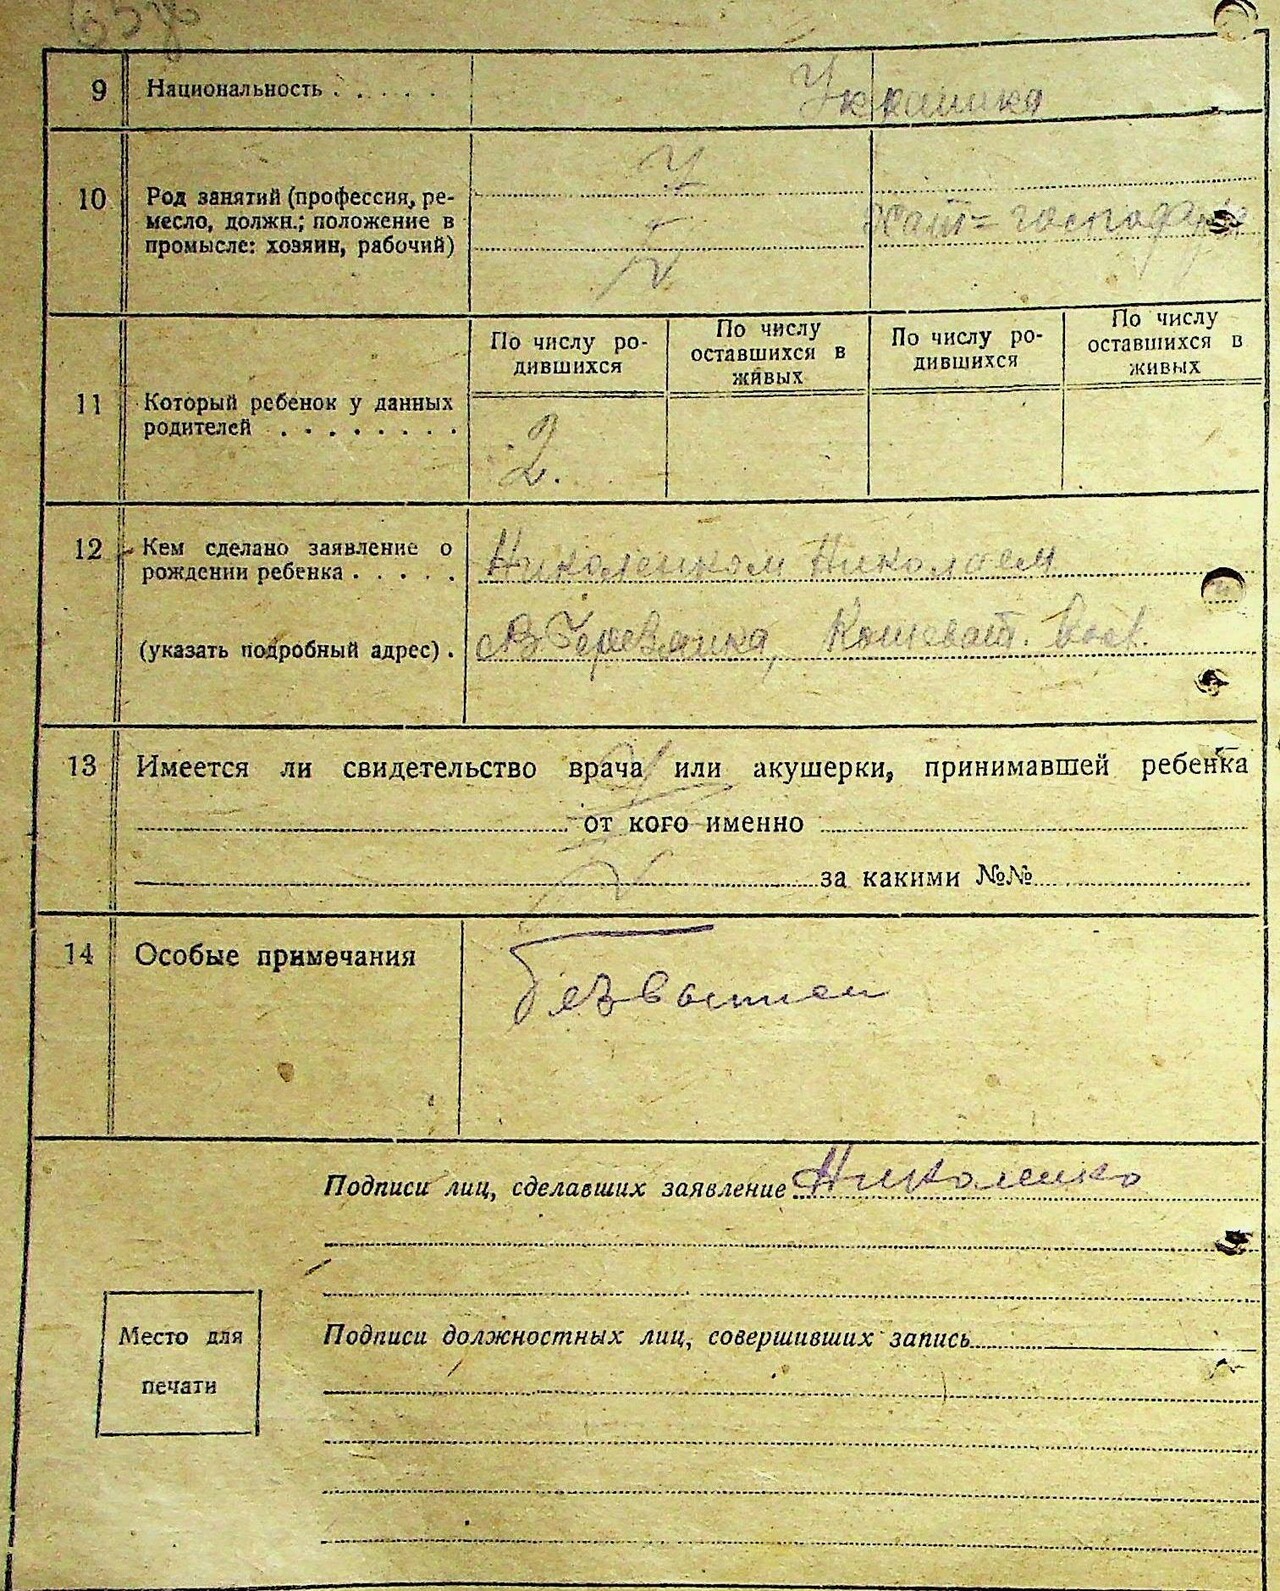 9 Национальность . . . . . Украинка
10 Род занятий (профессия, ре-
месло, должн.; положение в
промысле: хозяин, рабочий)
Хатт-господарк
По числу ро-
дившихся
По числу
оставшихся в
живых
По числу ро-
дившихся
По числу
оставшихся в
живых
11 Который ребенок у данных
родителей . . . . . . . .
2.
12 Кем сделано заявление о
рождении ребенка . . . . . Николенком Николаем
(указать подробный адрес) . Черевлинка, Кошеват.
13 Имеется ли свидетельство врача или акушерки, принимавшей ребенка
от кого именно
за какими №№
14 Особые примечания
Подписи лиц, сделавших заявление Николенко
Место для
печати
Подписи должностных лиц, совершивших запись